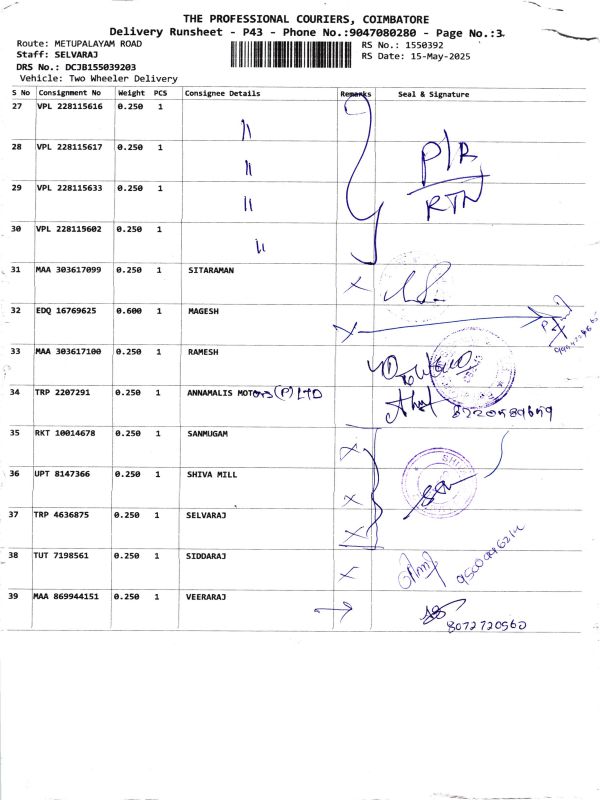 THE PROFESSIONAL COURIERS, COIMBATORE
Delivery Runsheet - P43 - Phone No.:9047080280 - Page No.:3
Route: METUPALAYAM ROAD RS No.: 1550392
Staff: SELVARAJ RS Date: 15-May-2025
DRS No.: DCJB155039203
Vehicle: Two Wheeler Delivery
S No Consignment No Weight PCS Consignee Details Remarks Seal & Signature
27 VPL 228115616 0.250 1 "
28 VPL 228115617 0.250 1 " P/R
29 VPL 228115633 0.250 1 " RTN
30 VPL 228115602 0.250 1 "
31 MAA 303617099 0.250 1 SITARAMAN
32 EDQ 16769625 0.600 1 MAGESH
33 MAA 303617100 0.250 1 RAMESH
34 TRP 2207291 0.250 1 ANNAMALIS MOTORS (P) LTD
35 RKT 10014678 0.250 1 SANMUGAM
36 UPT 8147366 0.250 1 SHIVA MILL
37 TRP 4636875 0.250 1 SELVARAJ
38 TUT 7198561 0.250 1 SIDDARAJ
39 MAA 869944151 0.250 1 VEERARAJ
8072720562